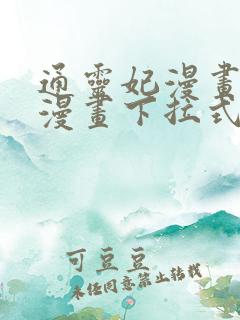 通靈妃漫畫
漫畫下拉式
可豆豆
未经同意禁止转载